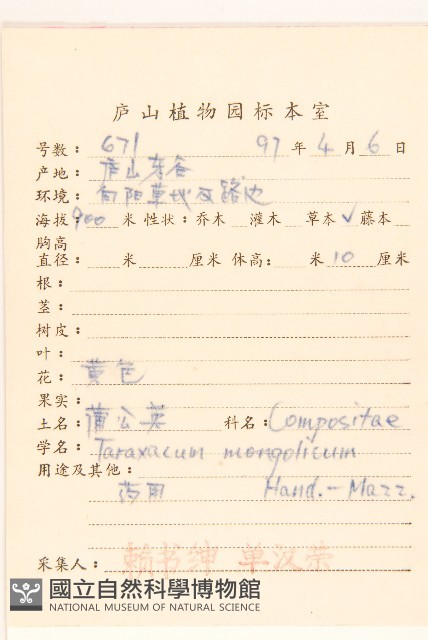 庐山植物园标本室
号数：671 97年4月6日
产地：庐山东谷
环境：向阳草地及路边
海拔：900米 性状：乔木 灌木 草本✓藤本
胸高
直径： 米 厘米 体高： 米10厘米
根：
茎：
树皮：
叶：
花：黄色
果实：
土名：蒲公英 科名：Compositae
学名：Taraxacum mongolicum
用途及其他：
药用 Hand.-Mazz.
采集人：赖书绅 单汉荣
國立自然科學博物館
NATIONAL MUSEUM OF NATURAL SCIENCE